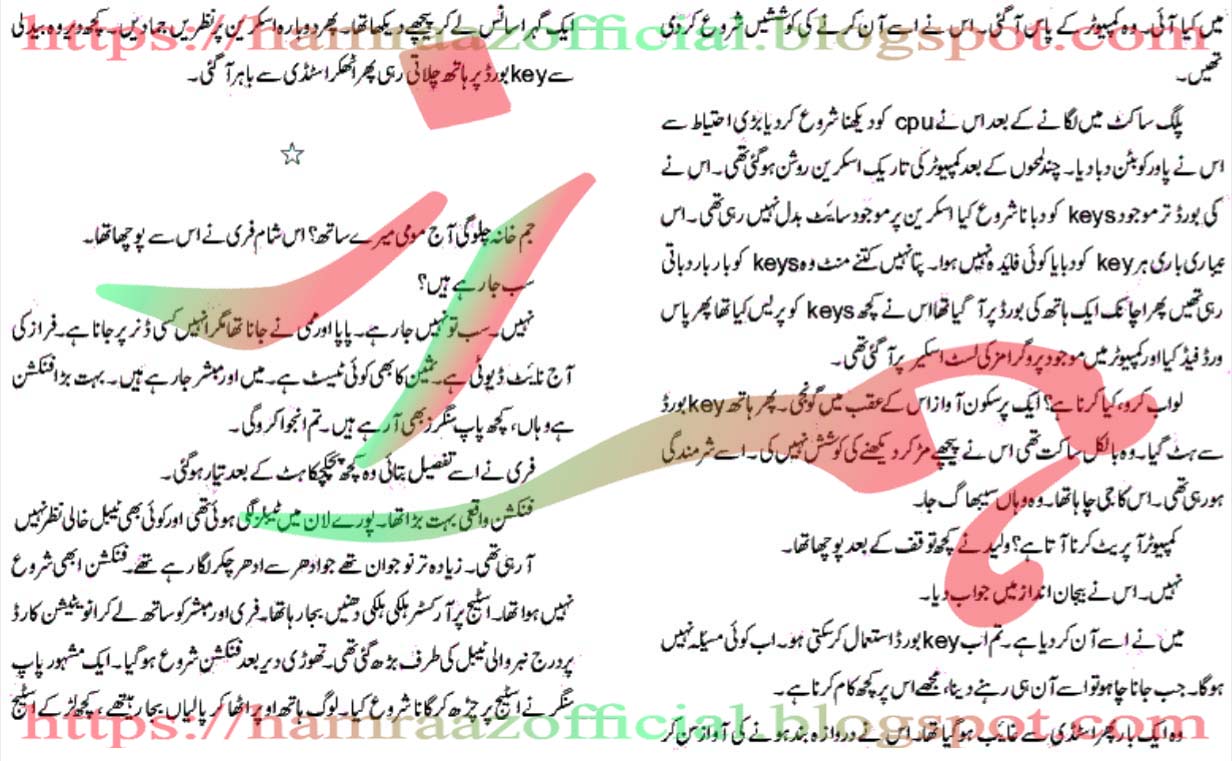 میں کیا آئی۔ وہ کمپیوٹر کے پاس آ گئی۔ اس نے اسے آن کرنے کی کوششیں شروع کر دی
تھیں۔
پلگ ساکٹ میں لگانے کے بعد اس نے cpu کو دیکھنا شروع کر دیا بڑی احتیاط سے
اس نے پاور کو بٹن دبا دیا۔ چند لمحوں کے بعد کمپیوٹر کی تاریک اسکرین روشن ہو گئی تھی۔ اس نے
کی بورڈ تر موجود keys کو دبانا شروع کیا اسکرین پر موجود سایٹ بدل نہیں رہی تھی۔ اس
عیاری باری ہر key کو دبایا کوئی فایدہ نہیں ہوا۔ پتا نہیں کتنے منٹ وہ keys کو بار بار دباتی
رہی تھیں پھر اچانک ایک ہاتھ کی بورڈ پر آ گیا تھا اس نے کچھ keys کو پریس کیا تھا پھر پاس
ورڈ فیڈ کیا اور کمپیوٹر میں موجود پروگرامز کی لسٹ اسکیر پر آ گئی تھی۔
لو اب کرو، کیا کرنا ہے؟ ایک پرسکون آواز اس کے عقب میں گونجی۔ پھر ہاتھ key بورڈ
سے ہٹ گیا۔ وہ بالکل ساکت تھی اس نے پیچھے مڑ کر دیکھنے کی کوشش نہیں کی۔ اسے شرمندگی
ہو رہی تھی۔ اس کا جی چاہا تھا۔ وہ وہاں سیبھاگ جا۔
کمپیوٹر آپریٹ کرنا آتا ہے؟ ولید نے کچھ توقف کے بعد پوچھا تھا۔
نہیں۔ اس نے بیجان انداز میں جواب دیا۔
میں نے اسے آن کر دیا ہے۔ تم اب key بورڈ استعمال کر سکتی ہو۔ اب کوئی مسیلہ نہیں
ہوگا۔ جب جانا چاہو تو اسے آن ہی رہنے دینا، مجھے اس پر کچھ کام کرنا ہے۔
وہ ایک بار پھر اسٹڈی سے غایب ہو گیا تھا۔ اس نے دروازہ بند ہونے کی آواز سن کر
ایک گہرا سانس لے کر پیچھے دیکھا تھا۔ پھر دوبارہ اسکرین پر نظریں جما دیں۔ کچھ دیر وہ بیدلی
سے key بورڈ پر ہاتھ چلاتی رہی پھر اٹھکر اسٹڈی سے باہر آ گئی۔
☆
جم خانہ چلو گی آج مومی میرے ساتھ؟ اس شام فری نے اس سے پوچھا تھا۔
سب جا رہے ہیں؟
نہیں۔ سب تو نہیں جا رہے۔ پاپا اور ممی نے جانا تھا مگر انہیں کسی ڈنر پر جانا ہے۔ فراز کی
آج نایٹ ڈیوٹی ہے۔ ثمین کا بھی کوئی ٹیسٹ ہے۔ میں اور مبشر جا رہے ہیں۔ بہت بڑا فنکشن
ہے وہاں، کچھ پاپ سنگرز بھی آ رہے ہیں۔ تم انجوا کرو گی۔
فری نے اسے تفصیل بتائی وہ کچھ ہچکچاہٹ کے بعد تیار ہو گئی۔
فنکشن واقعی بہت بڑا تھا۔ پورے لان میں ٹیبلز لگی ہوئی تھی اور کوئی بھی ٹیبل خالی نظر نہیں
آ رہی تھی۔ زیادہ تر نوجوان تھے جو ادھر سے ادھر چکر لگا رہے تھے۔ فنکشن ابھی شروع
نہیں ہوا تھا۔ اسٹیج پر آرکسٹر ہلکی ہلکی دھنیں بجا رہا تھا۔ فری اور مبشر کو ساتھ لے کر انویٹیشن کارڈ
پر درج نہر والی ٹیبل کی طرف بڑھ گئی تھی۔ تھوڑی دیر بعد فنکشن شروع ہو گیا۔ ایک مشہور پاپ
سنگر نے اسٹیج پر چڑھ کر گانا شروع کیا۔ لوگ ہاتھ اوپر اٹھا کر پالیاں بجا رہتھے، کچھ لڑکے اسٹیج
https://hamraazofficial.blogspot.com
https://hamraazofficial.blogspot.com